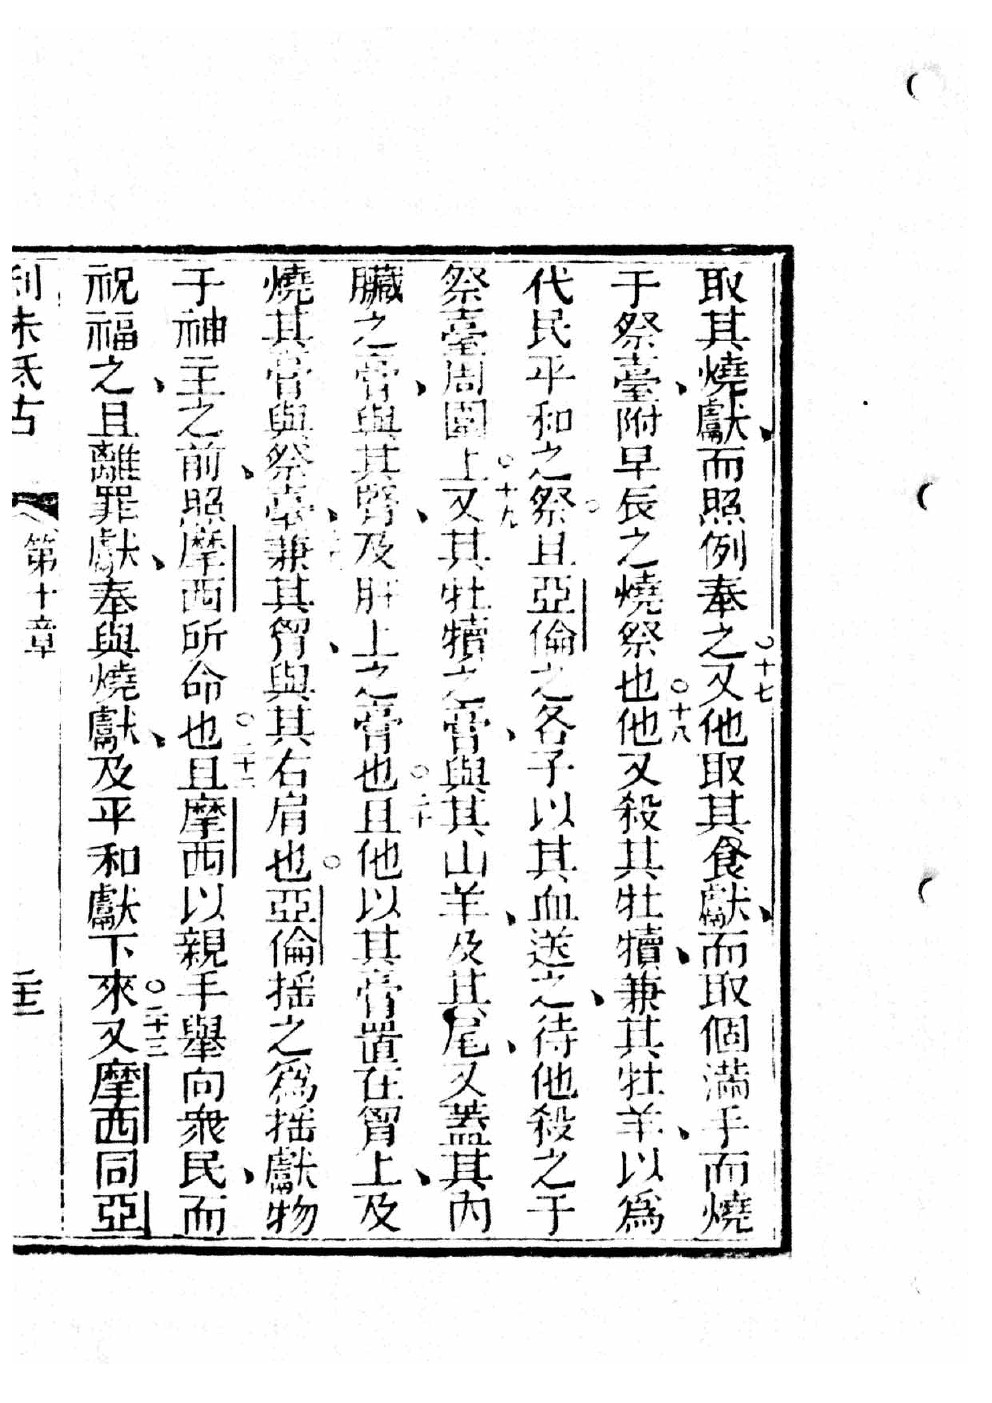 取其燒獻、而照例奉之○十七又他取其食獻、而取個滿手而燒
于祭臺、附早辰之燒祭也○十八他又殺其牡犢、兼其牡羊、以爲
代民平和之祭○且亞倫之各子以其血送之、待他殺之于
祭臺周圍上○十九又其牡犢之膏、與其山羊、及其尾、又蓋其內
臟之膏、與其腎、及肝上之膏也○二十且他以其膏置在胷上、及
燒其膏與祭臺、兼其胷、與其右肩也○亞倫搖之爲搖獻物
于神主之前、照摩西所命也○二十二且摩西以親手舉向衆民、而
祝福之、且離罪獻、奉與燒獻、及平和獻下來○二十三又摩西同亞
利未氐古
第十章
二十三